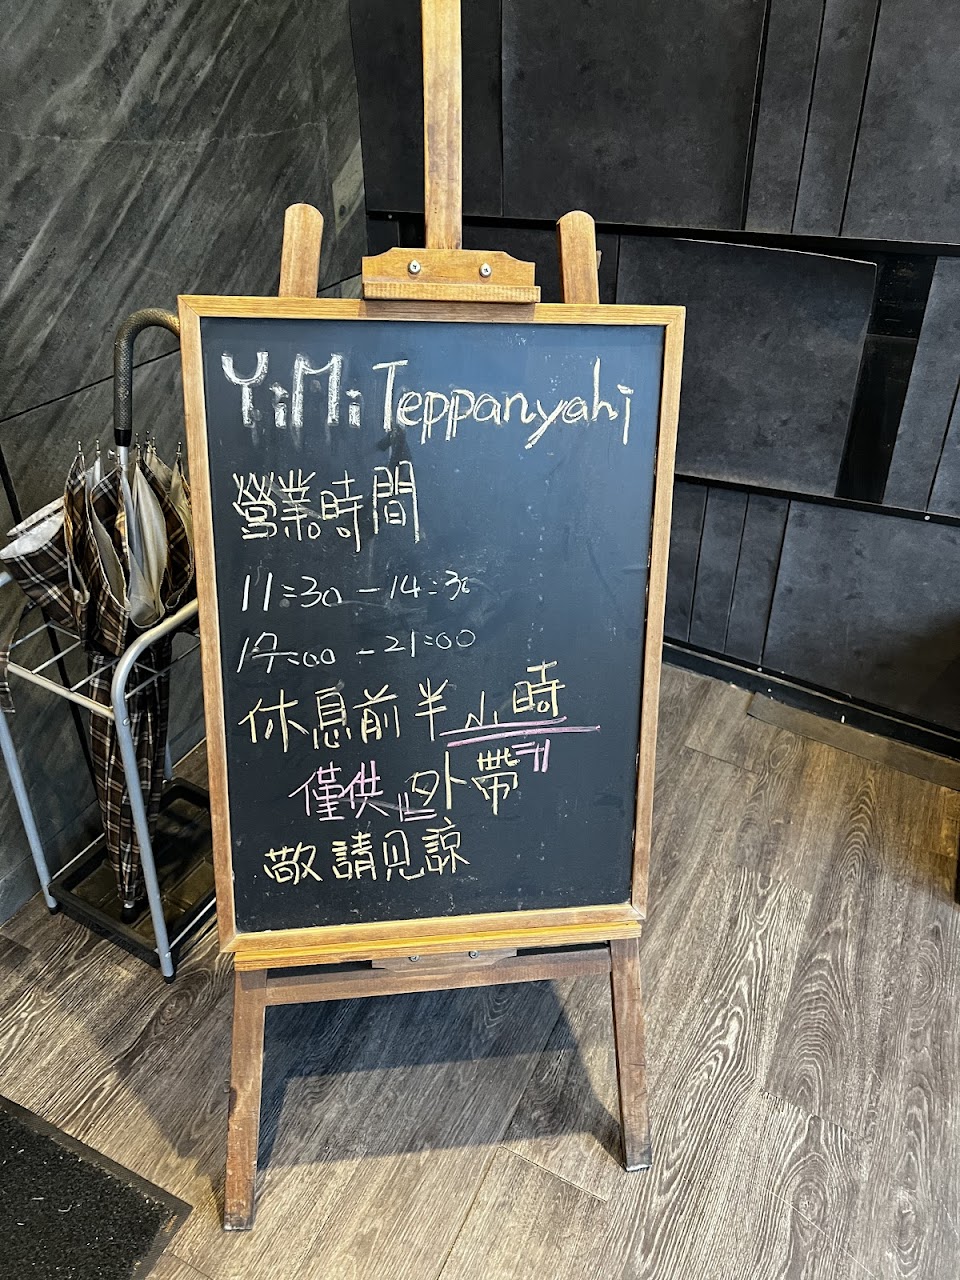 YiMi Teppanyahi
營業時間
11:30-14:30
17:00-21:00
休息前半小時
僅供『外帶』
敬請見諒